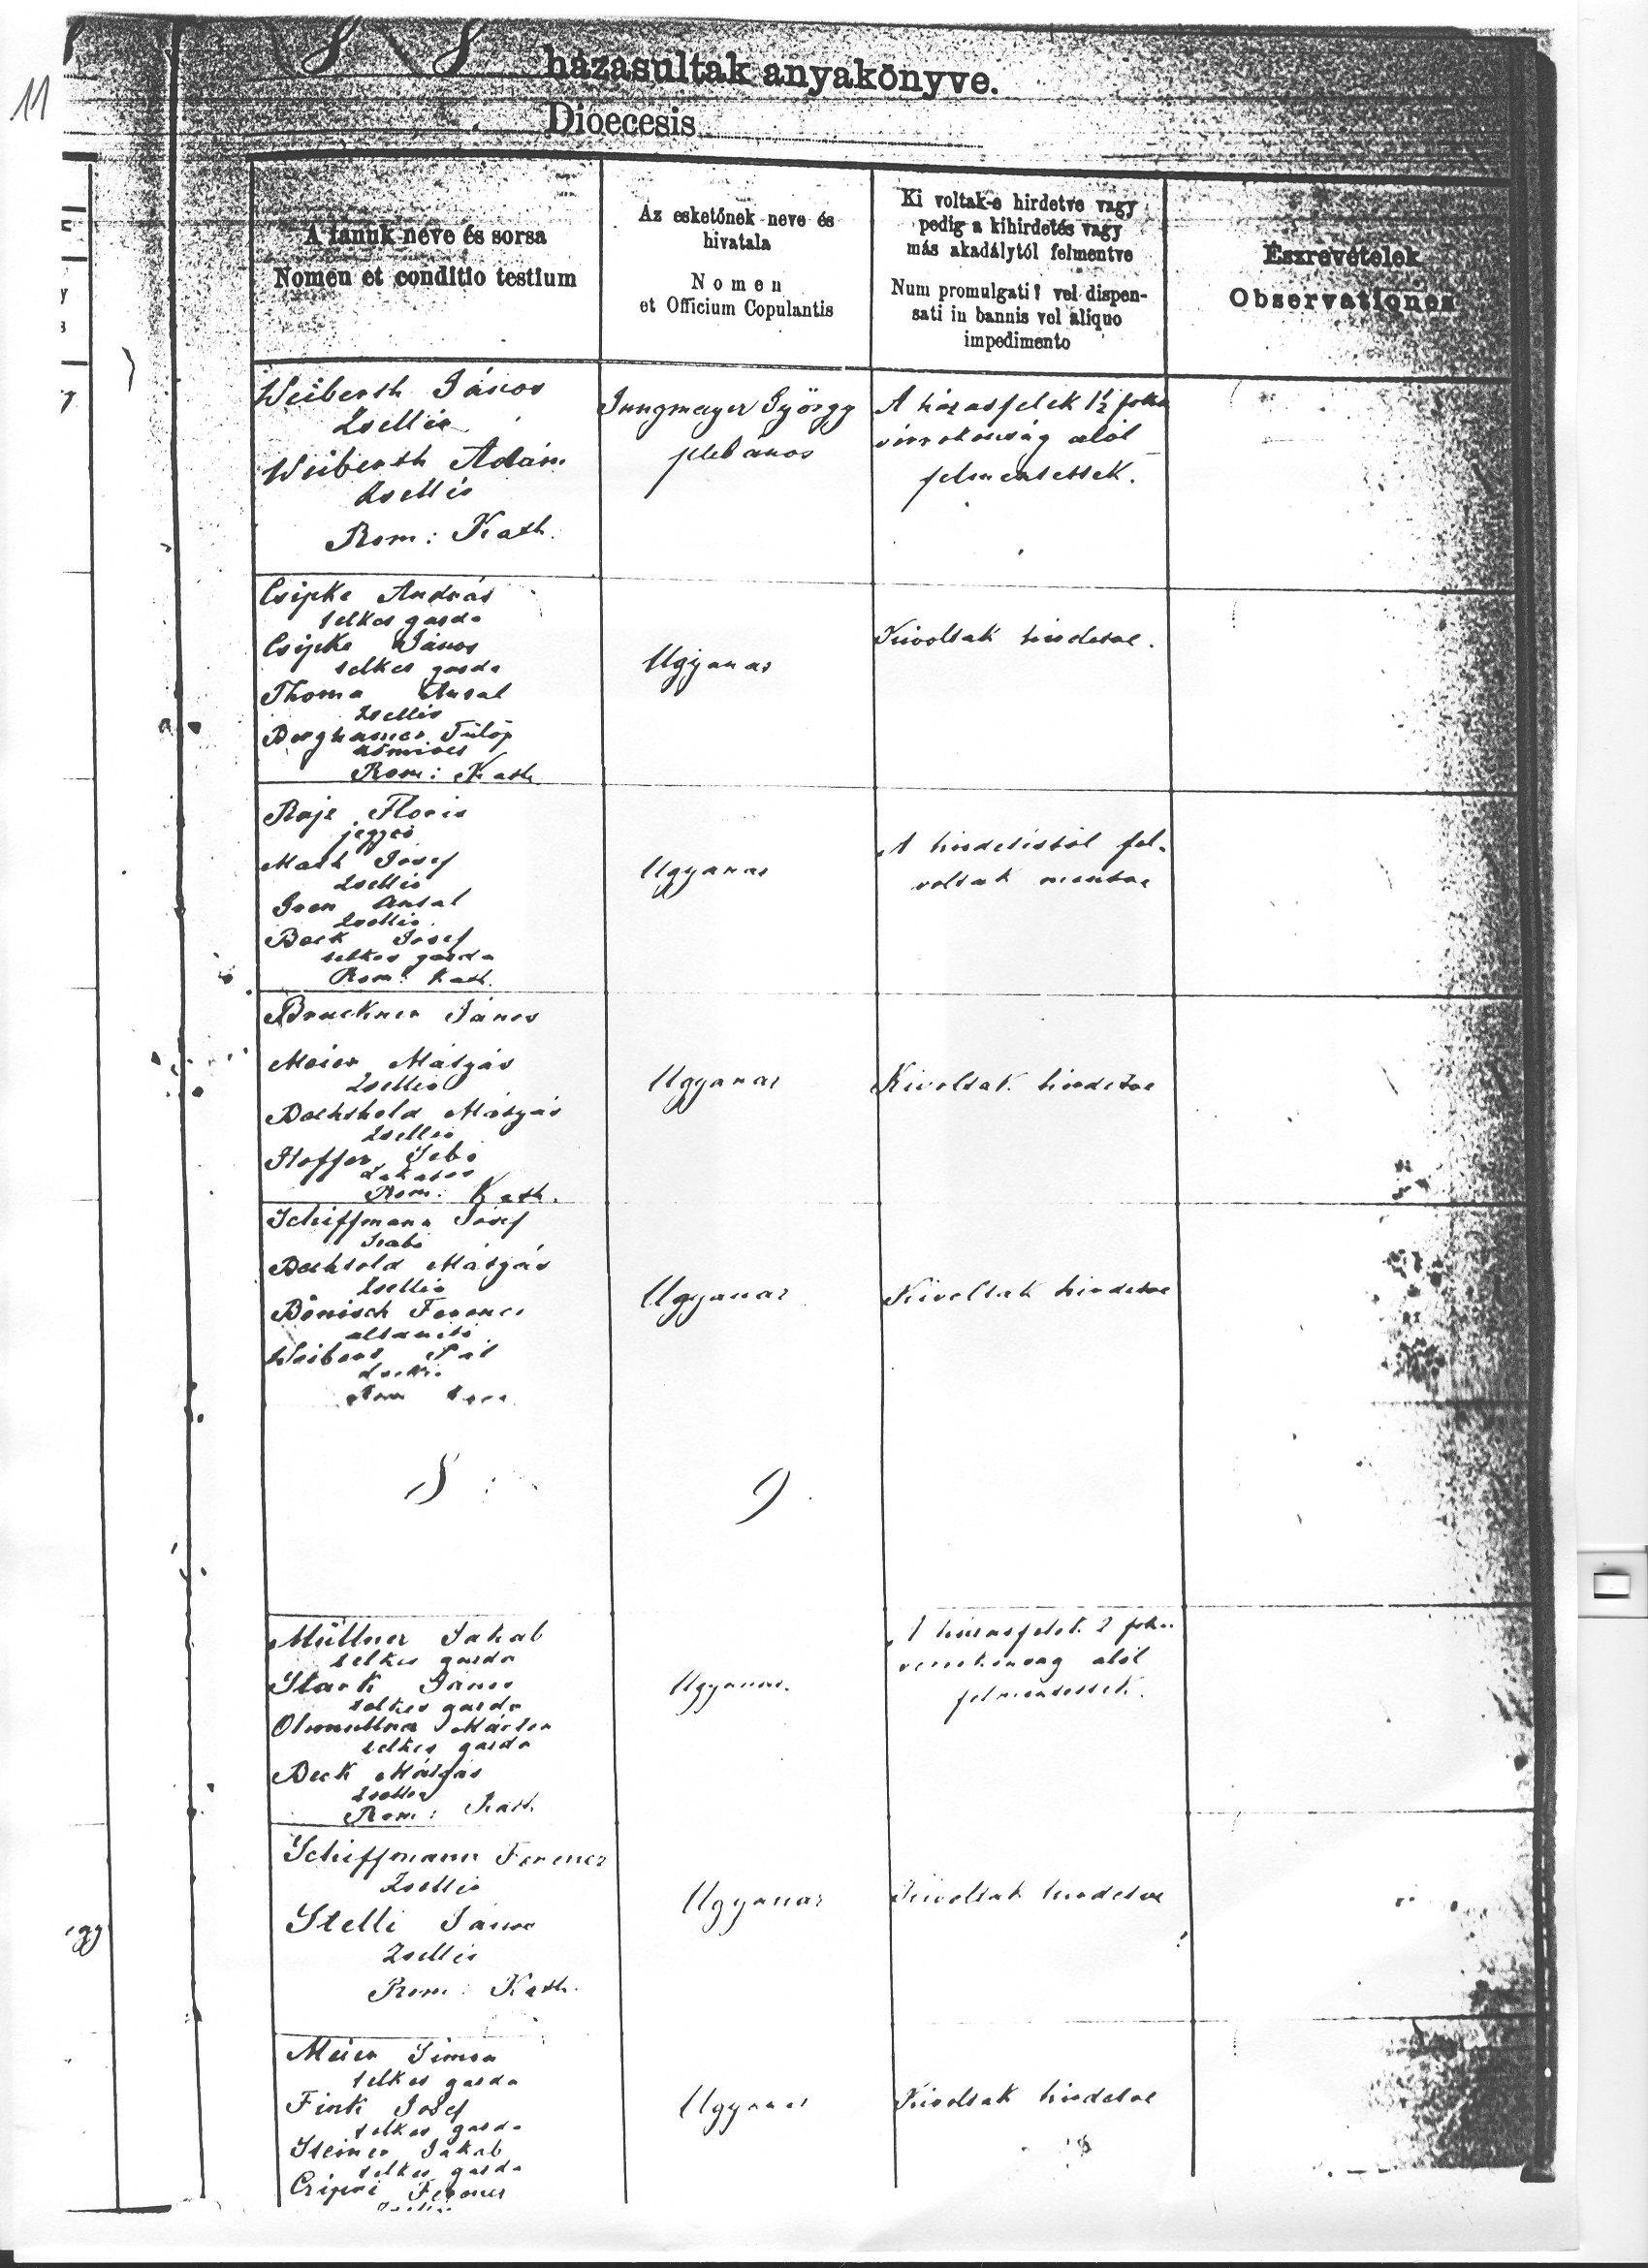 11
házasultak anyakönyve.
Dioecesis
A tanuk neve és sorsa
Nomen et conditio testium
Az esketőnek neve és
hivatala
Nomen
et Officium Copulantis
Ki voltak-e hirdetve vagy
pedig a kihirdetés vagy
más akadálytól felmentve
Num promulgati? vel dispen-
sati in bannis vel aliquo
impedimento
Észrevételek
Observationes
Weiberth János
Zsellér
Weiberth Adám
Zsellér
Rom: Kath.
Jungmayer György
plebános
A házasfelek 1½ foku
vérrokonság alól
felmentettek.
Csipke András
telkes gazda
Csipke János
telkes gazda
Thoma Antal
Zsellér
Fülöp
kőmives
Rom: Kath
Ugyanaz
Kivoltak hirdetve.
Raje Floris
jegyző
József
Zsellér
Antal
Zsellér
Beck József
telkes gazda
Rom: Kath.
Ugyanaz
A hirdetéstől fel-
voltak mentve
Bruckner János
Meier Mátyás
Zsellér
Mátyás
Zsellér
Stoffer Sebő
Lakatos
Rom: Kath.
Ugyanaz
Kivoltak hirdetve
Schiffmann József
Szabó
Bechtold Mátyás
Zsellér
Bönisch Ferencz
altanitó
Weibert Pál
Zsellér
Rom
Ugyanaz
Kivoltak hirdetve
Müllner Jakab
telkes gazda
Stark János
telkes gazda
Márton
telkes gazda
Beck Mátyás
Zsellér
Rom: Kath.
Ugyanaz.
A házasfelek 2 foku
vérrokonság alól
felmentettek.
Schiffmann Ferencz
Zsellér
Stelli János
Zsellér
Rom: Kath.
Ugyanaz
Kivoltak hirdetve
Meier Simon
telkes gazda
Fink József
telkes gazda
Steiner Jakab
telkes gazda
Ferencz
Zsellér
Ugyanaz
Kivoltak hirdetve